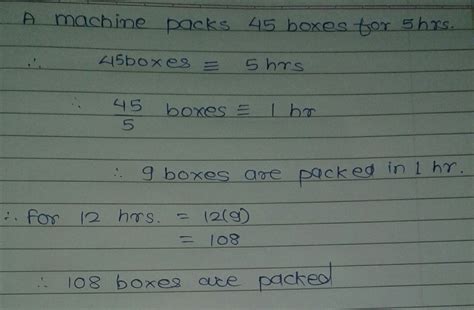 A machine packs 45 boxes for 5hrs.
∴ 45boxes ≡ 5 hrs
∴ 45/5 boxes ≡ 1 hr
∴ 9 boxes are packed in 1 hr.
∴ for 12 hrs. = 12(9)
= 108
∴ 108 boxes are packed